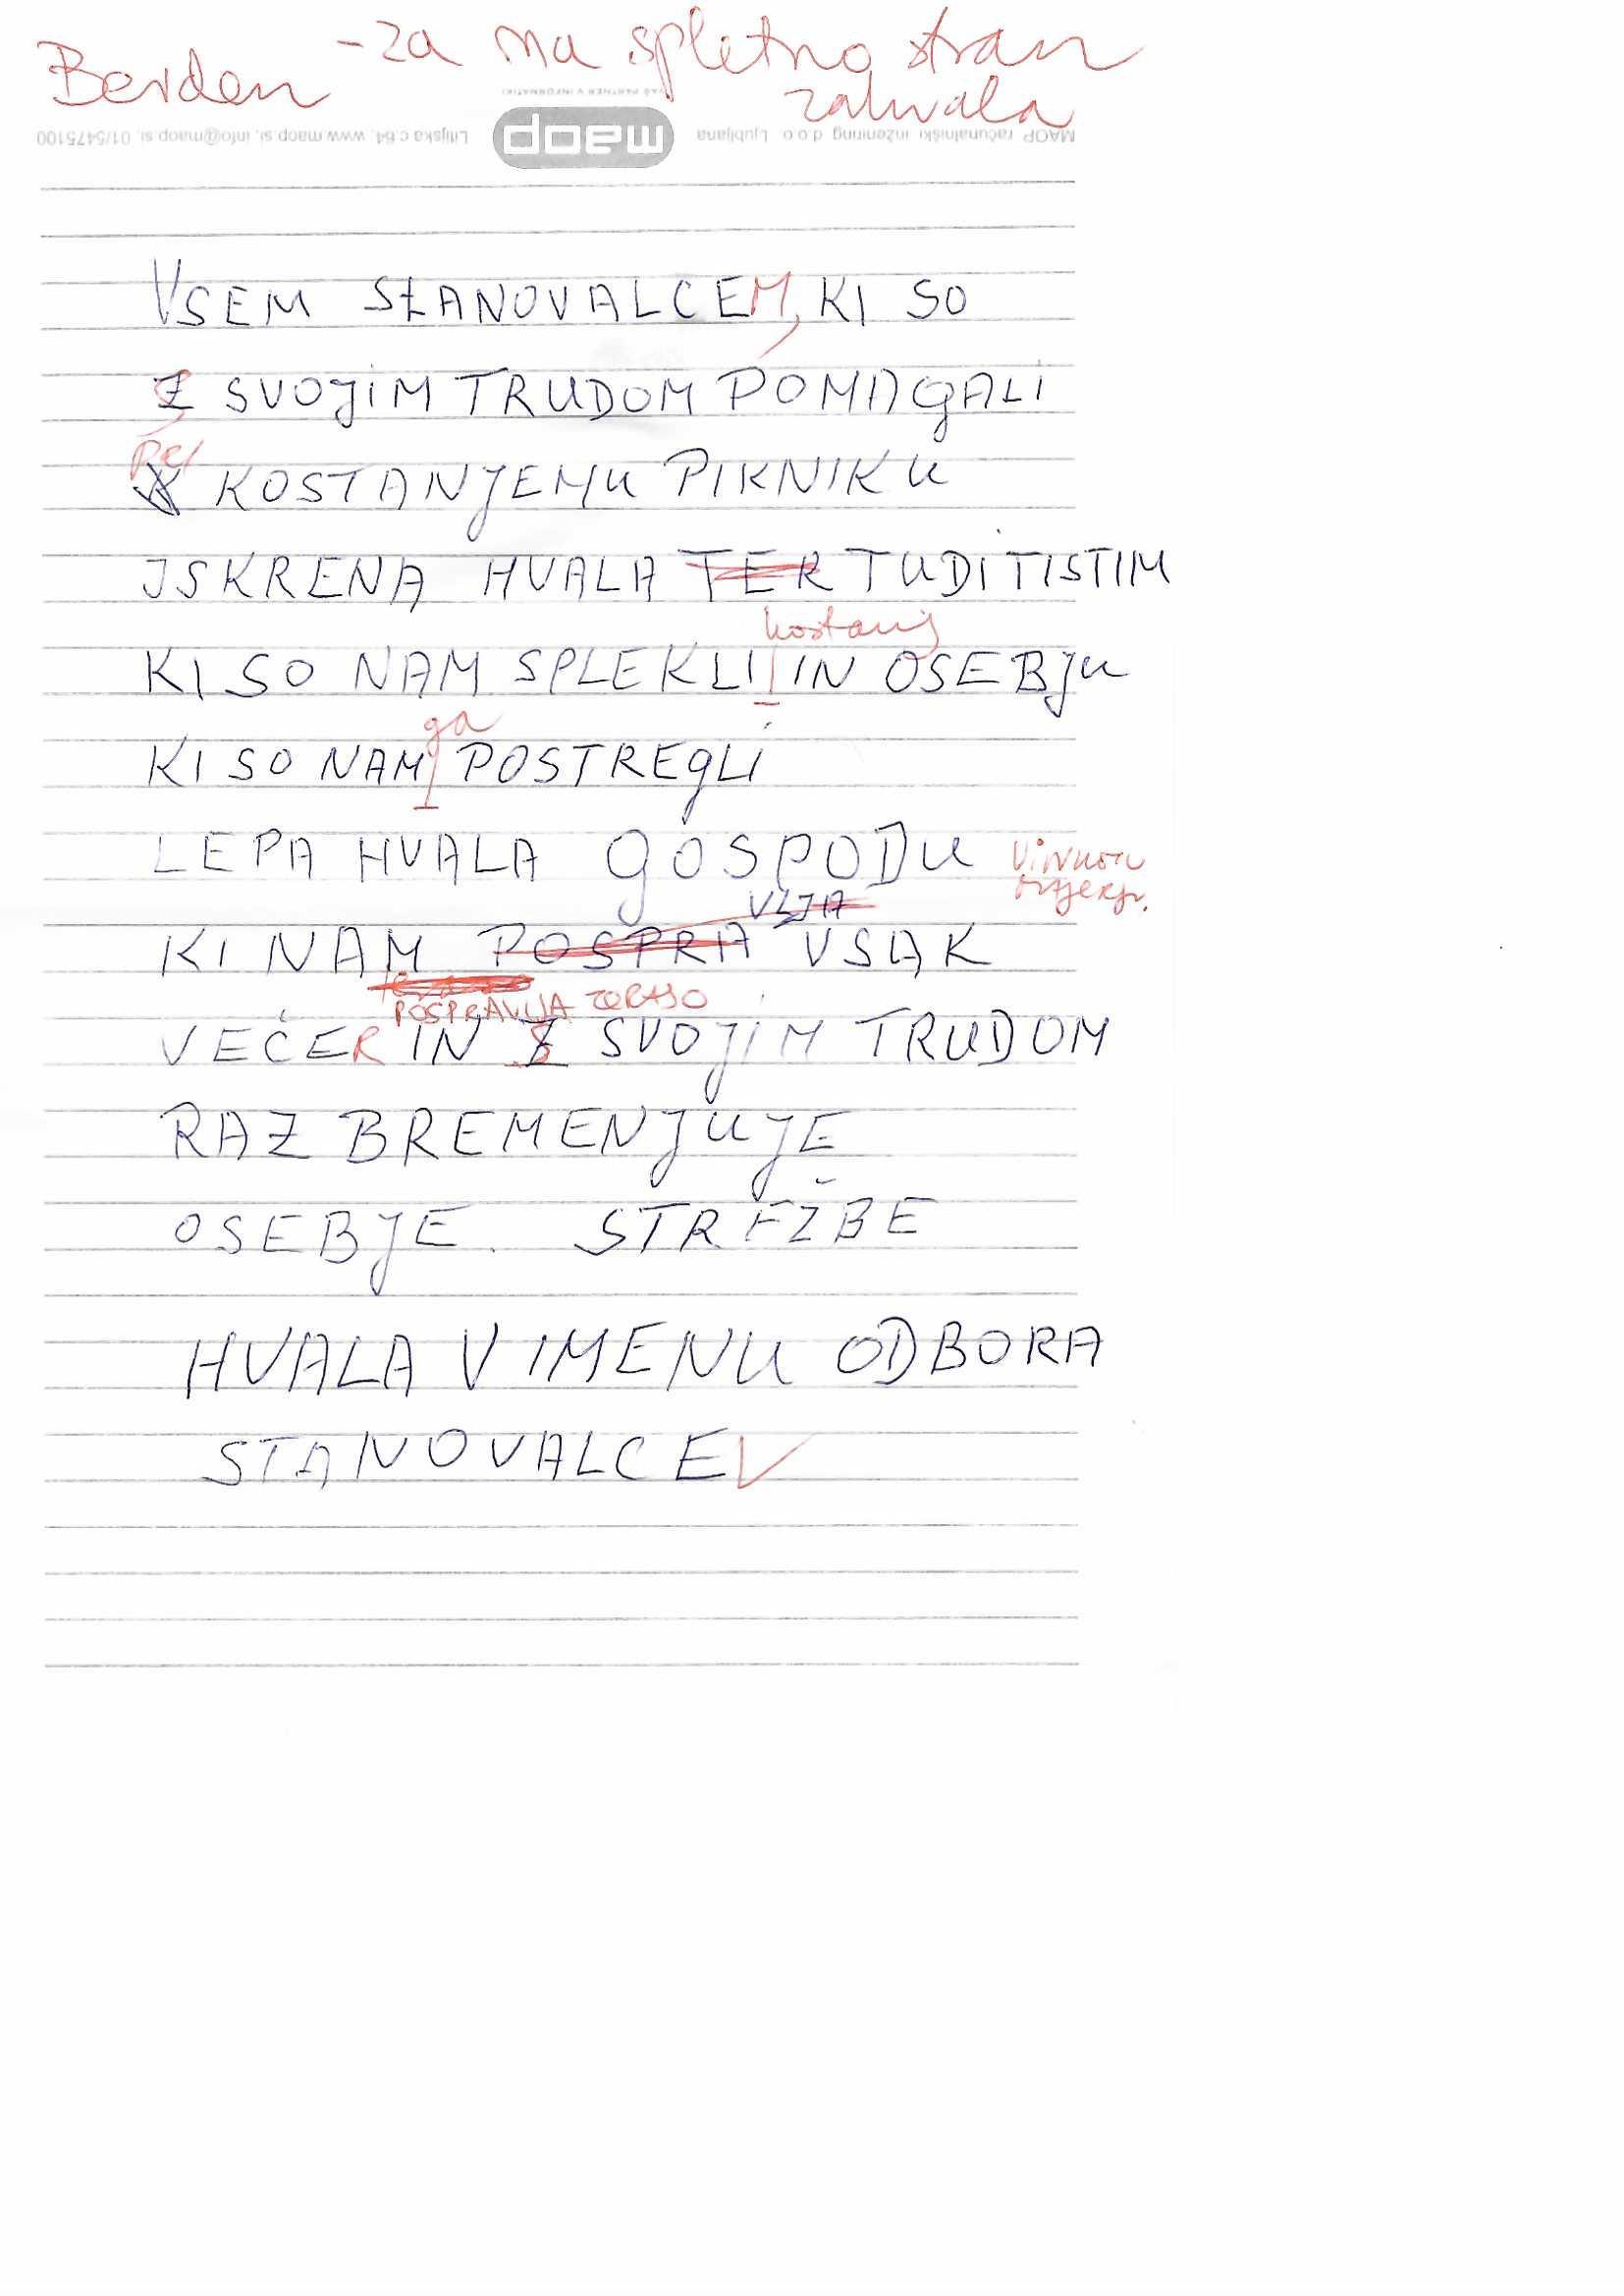 Berden - za na spletno stran
zahvala
VAŠ PARTNER V INFORMATIKI
MAOP računalniški inženiring d.o.o. Ljubljana maop Litijska c.64, www.maop.si, info@maop.si, 01/5475100
VSEM STANOVALCEM, KI SO
S SVOJIM TRUDOM POMAGALI
PRI
KOSTANJEMU PIKNIKU
ISKRENA HVALA TER TUDI TISTIM
kostanj
KI SO NAM SPLEKLI IN OSEBJU
ga
KI SO NAM POSTREGLI
LEPA HVALA GOSPODU
VLJA
KI NAM POSPRA VSAK
POSPRAVLJA TERASO
VEČER IN S SVOJIM TRUDOM
RAZBREMENJUJE
OSEBJE STREŽBE
HVALA V IMENU ODBORA
STANOVALCEV